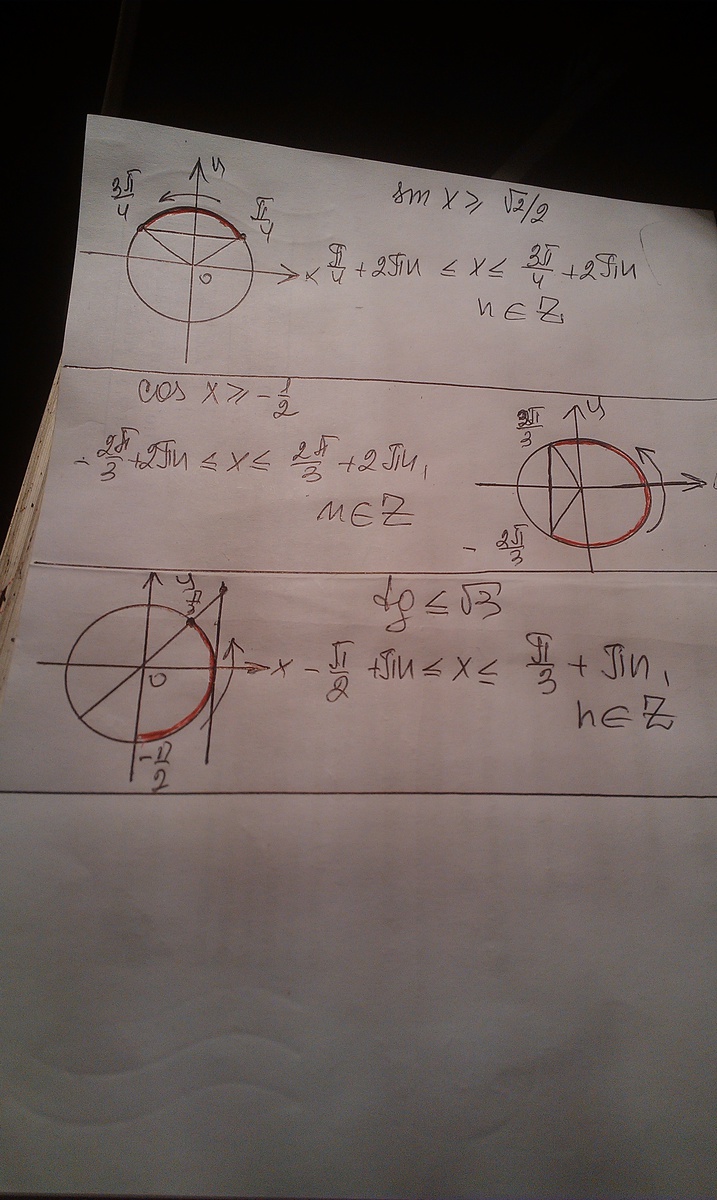 y
3π/4
π/4
sin x ⩾ √2/2
0
x
π/4 + 2πn ≤ x ≤ 3π/4 + 2πn
n ∈ Z
cos x ⩾ -1/2
- 2π/3 + 2πn ≤ x ≤ 2π/3 + 2πn,
n ∈ Z
2π/3
y
- 2π/3
y
π/3
tg ≤ √3
0
x
- π/2 + πn ≤ x ≤ π/3 + πn,
n ∈ Z
- π/2